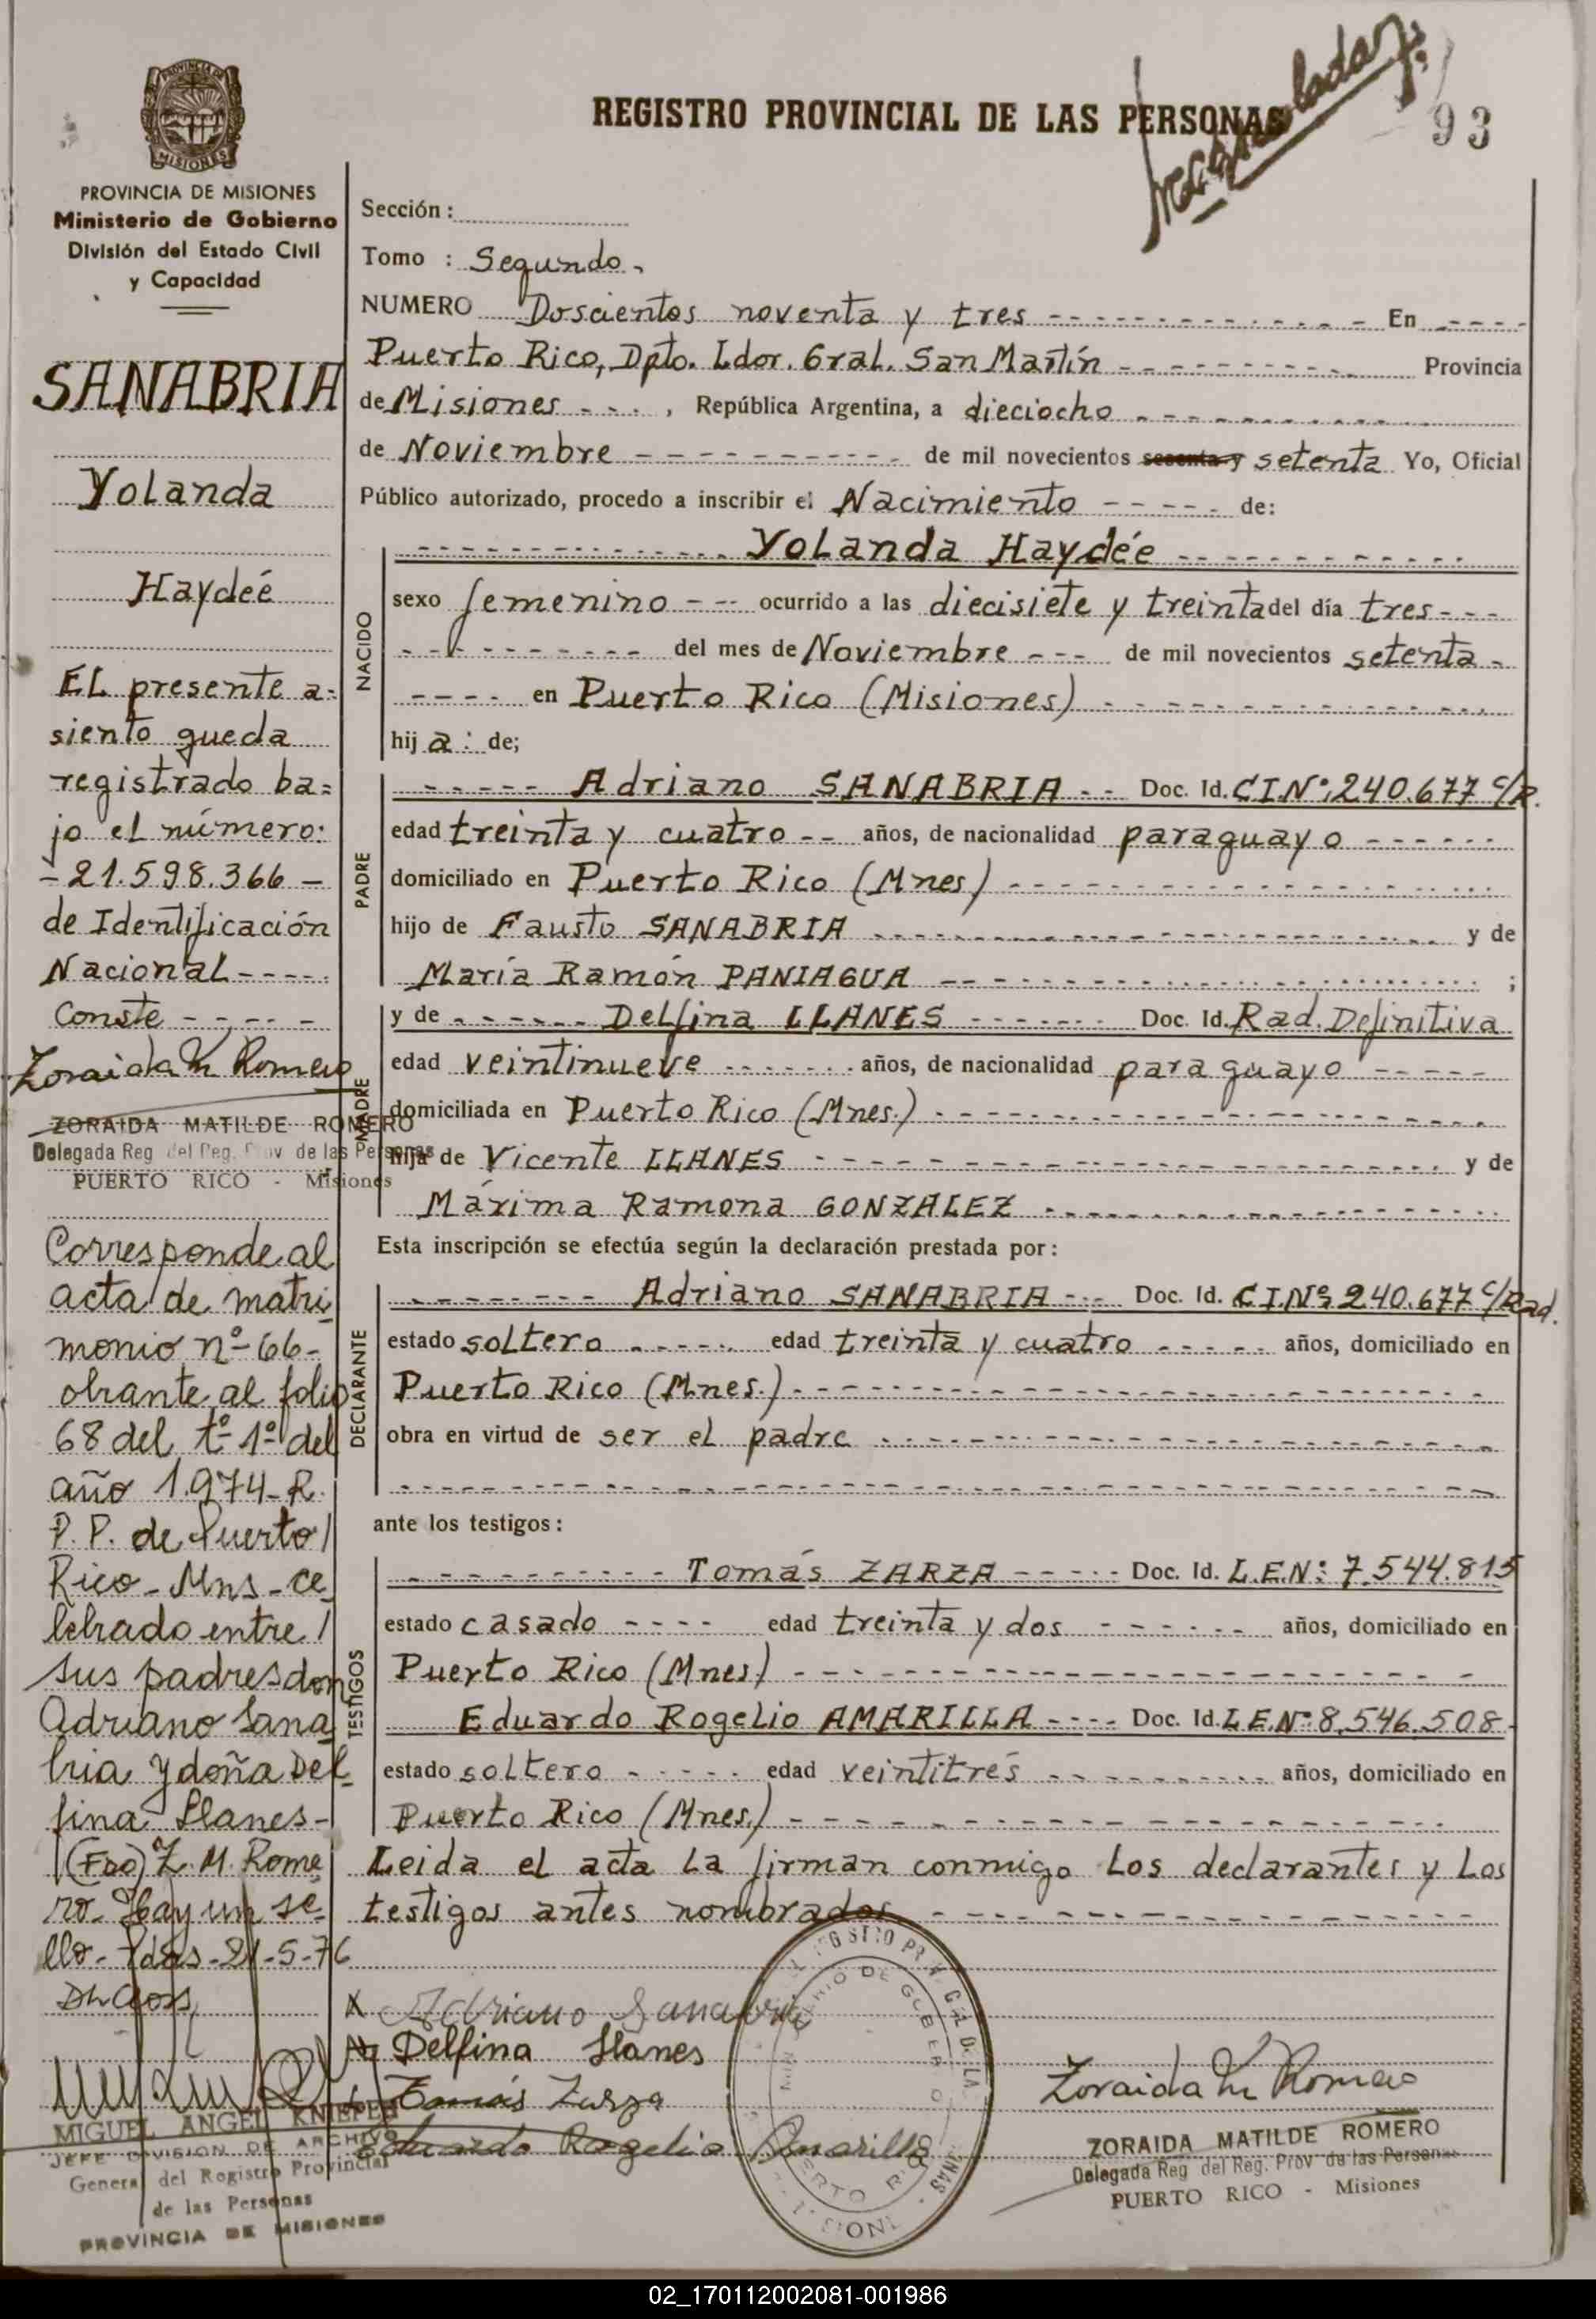 REGISTRO PROVINCIAL DE LAS PERSONAS
93
PROVINCIA DE
MISIONES
PROVINCIA DE MISIONES
Ministerio de Gobierno
División del Estado Civil
y Capacidad
SANABRIA
Yolanda
Haydeé
EL presente a=
siento queda
registrado ba=
jo el número:
-21.598.366-
de Identificación
Nacional-----
Conste -----
Zoraida M Romero
ZORAIDA MATILDE ROMERO
Delegada Reg del Reg. Prov de las Personas
PUERTO RICO - Misiones
Corresponde al
acta de matri
monio nº-66-
obrante al folio
68 del tº-1º del
año 1.974-R.
P.P. de Puerto/
Rico-Mns-ce
lebrado entre/
sus padres don
Adriano Sana
bria y doña Del
fina Llanes-
(Fdo) Z.M. Rome
ro-Hay un se
llo-Pdas-21-5-76
Sección:
Tomo : Segundo.
NUMERO Doscientos noventa y tres ---- En ----
Puerto Rico, Dpto. Ldor. Gral. San Martín ---- Provincia
de Misiones ---, República Argentina, a dieciocho ----
de Noviembre ---- de mil novecientos sesenta y setenta Yo, Oficial
Público autorizado, procedo a inscribir el Nacimiento ---- de:
NACIDO
---- Yolanda Haydée ----
sexo femenino --- ocurrido a las diecisiete y treinta del día tres---
---- del mes de Noviembre --- de mil novecientos setenta-
---- en Puerto Rico (Misiones) ----
hij a: de;
PADRE
---- Adriano SANABRIA -- Doc. Id. C.I.Nº:240.677 C/R.
edad treinta y cuatro -- años, de nacionalidad paraguayo ----
domiciliado en Puerto Rico (Mnes) ----
hijo de Fausto SANABRIA ---- y de
María Ramón PANIAGUA ---- ;
MADRE
y de ---- Delfina LLANES ---- Doc. Id. Rad. Definitiva
edad veintinueve ---- años, de nacionalidad paraguayo ----
domiciliada en Puerto Rico (Mnes.) ----
hija de Vicente LLANES ---- y de
Máxima Ramona GONZALEZ ----
Esta inscripción se efectúa según la declaración prestada por:
DECLARANTE
---- Adriano SANABRIA --- Doc. Id. C.I.Nº:240.677 C/Rad.
estado soltero ---- edad treinta y cuatro ---- años, domiciliado en
Puerto Rico (Mnes.) ----
obra en virtud de ser el padre ----
ante los testigos:
TESTIGOS
---- Tomás ZARZA ---- Doc. Id. L.E.N: 7.544.815
estado casado ---- edad treinta y dos ---- años, domiciliado en
Puerto Rico (Mnes) ----
Eduardo Rogelio AMARILLA ---- Doc. Id. L.E.Nº:8.546.508-
estado soltero ---- edad veintitrés ---- años, domiciliado en
Puerto Rico (Mnes.) ----
Leida el acta la firman conmigo los declarantes y los
testigos antes nombrados ----
Adriano Sanabria
Delfina Llanes
Tomás Zarza
Eduardo Rogelio Amarilla
Zoraida M Romero
ZORAIDA MATILDE ROMERO
Delegada Reg del Reg. Prov de las Personas
PUERTO RICO - Misiones
MIGUEL ANGEL KNIEPER
JEFE DIVISION DE ARCHIVO
General del Registro Provincial
de las Personas
PROVINCIA DE MISIONES
02_170112002081-001986